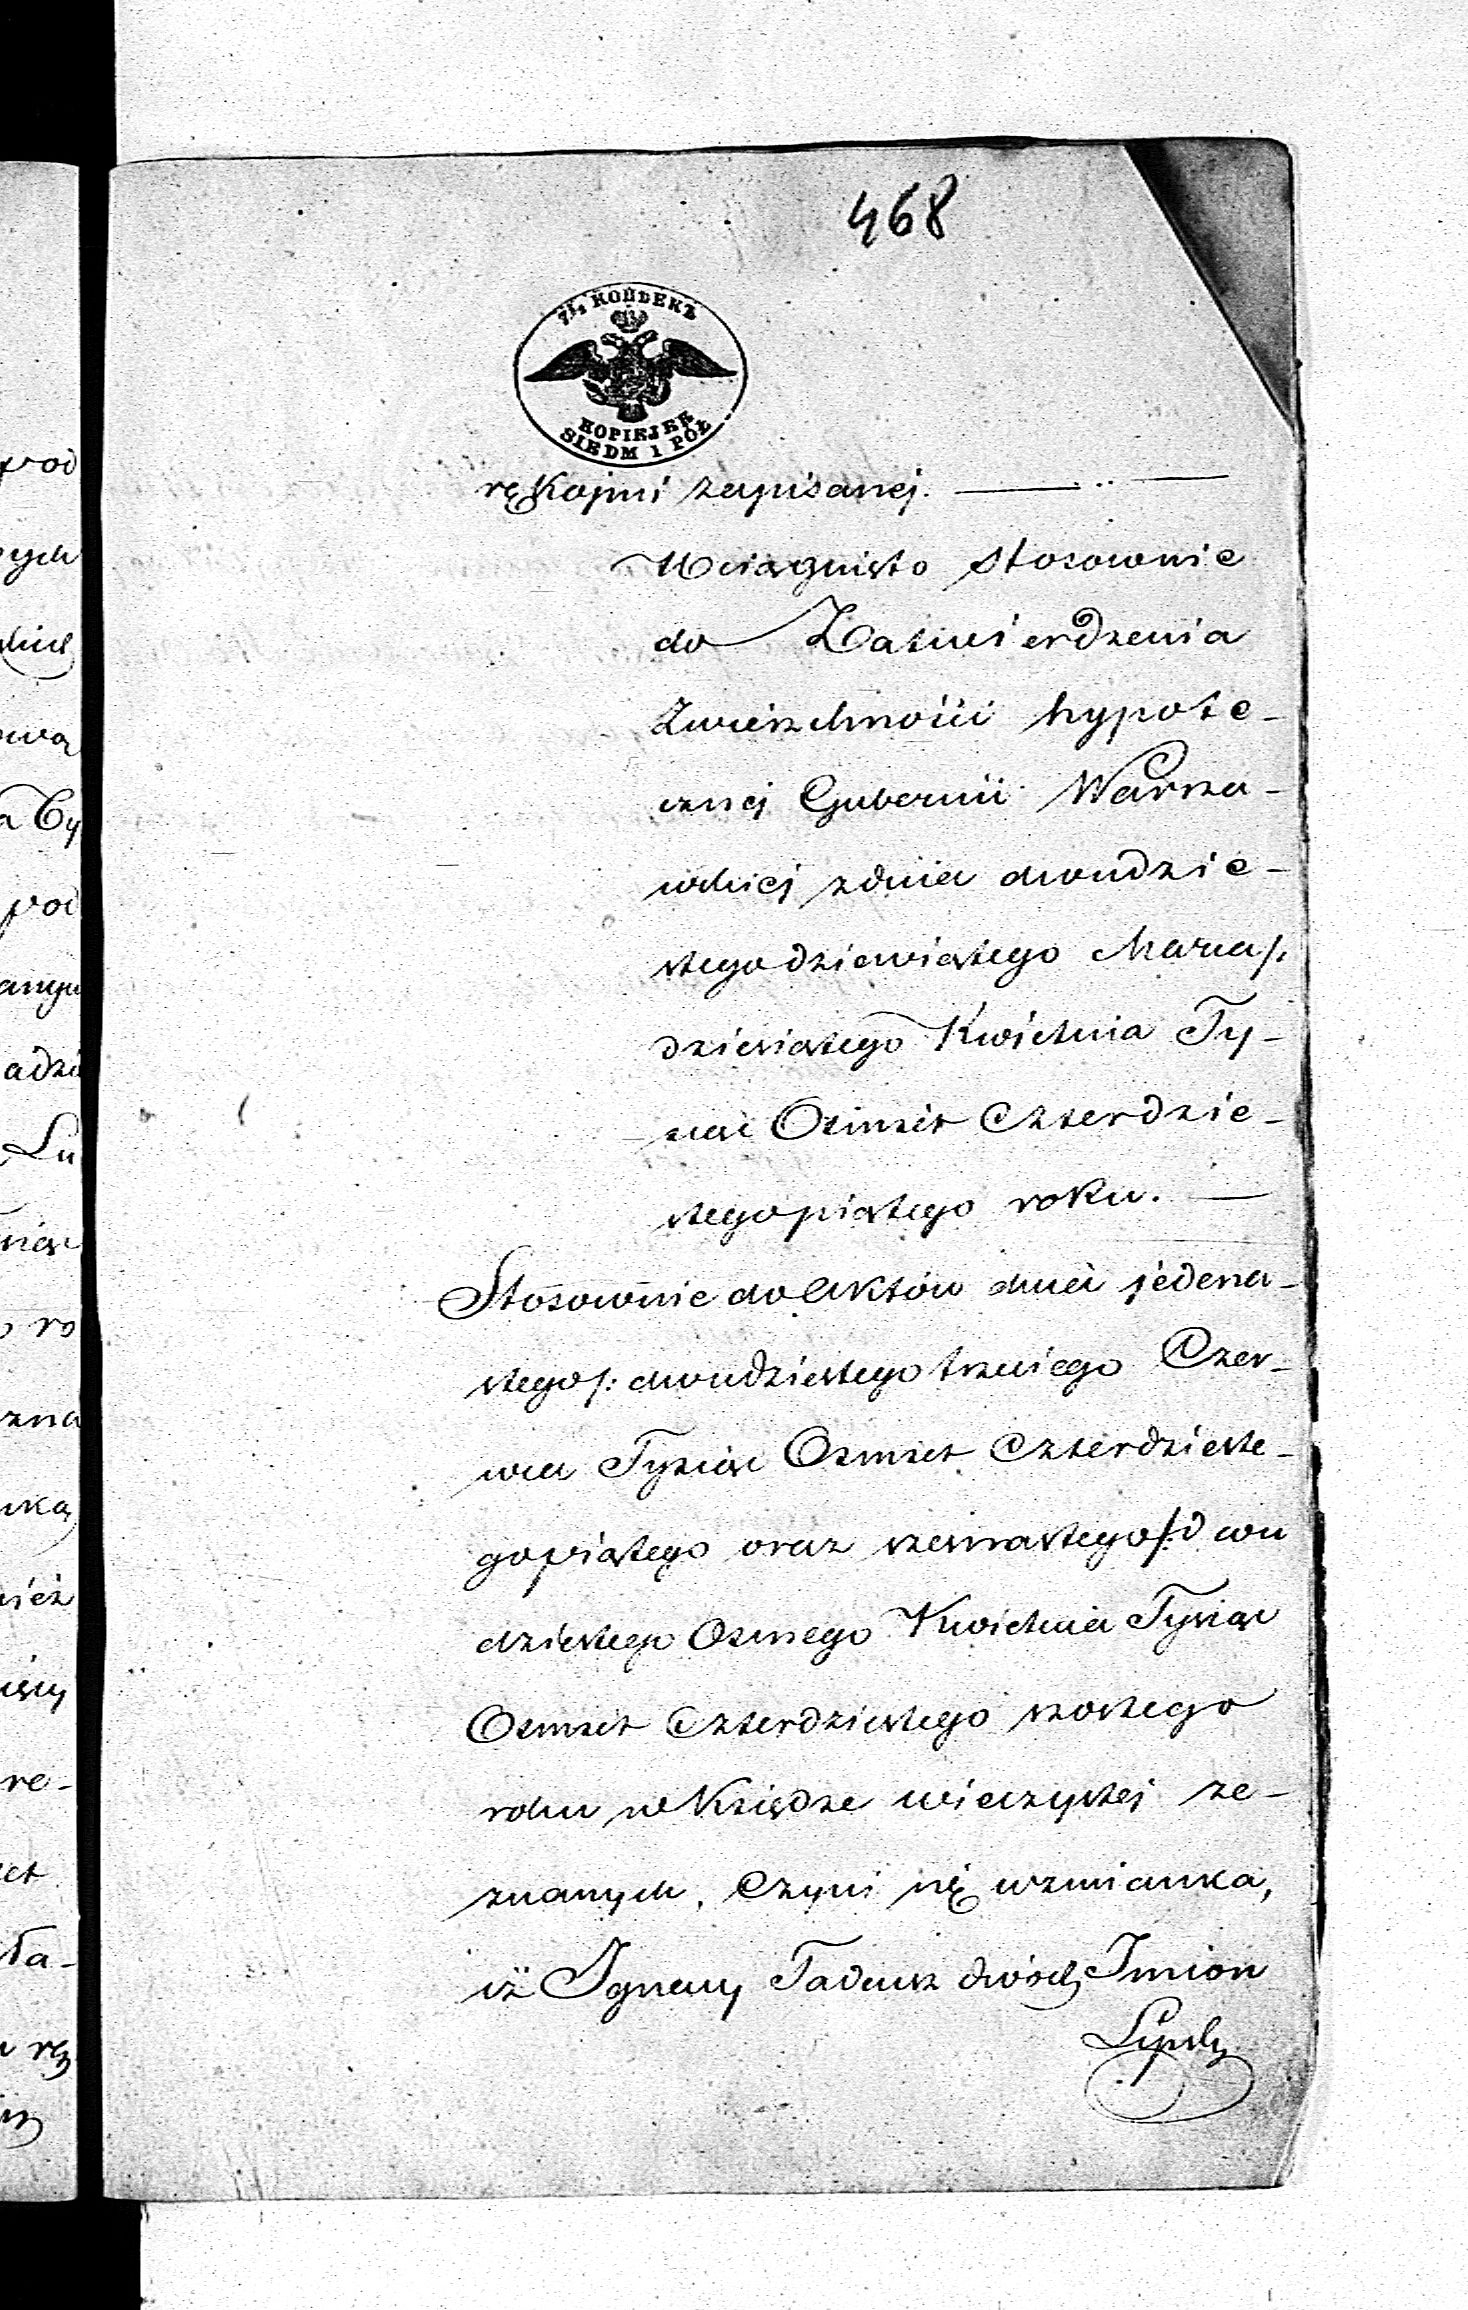 468
7½ КОПѢЕКЪ
KOPIEJEK
SIEDM I PÓŁ
rękojmi zapisanej.
Wciągnięto stosownie
do Zatwierdzenia
Zwierzchności hypote-
cznej Gubernii Warsza-
wskiej z dnia dwudzie-
stego dziewiątego Marca/:
dziewiątego Kwietnia Ty-
siąc Osmset Czterdzie-
stego piątego roku.
Stosownie do Aktów dnia jedena-
stego/: dwudziestego trzeciego Czer-
wca Tysiąc Osmset Czterdzieste-
go piątego oraz szesnastego/: dwu
dziestego Osmego Kwietnia Tysiąc
Osmset Czterdziestego szóstego
roku w Księdze wieczystej ze-
znanych, Czyni się wzmianka,
iż Ignacy Tadeusz dwóch Imion